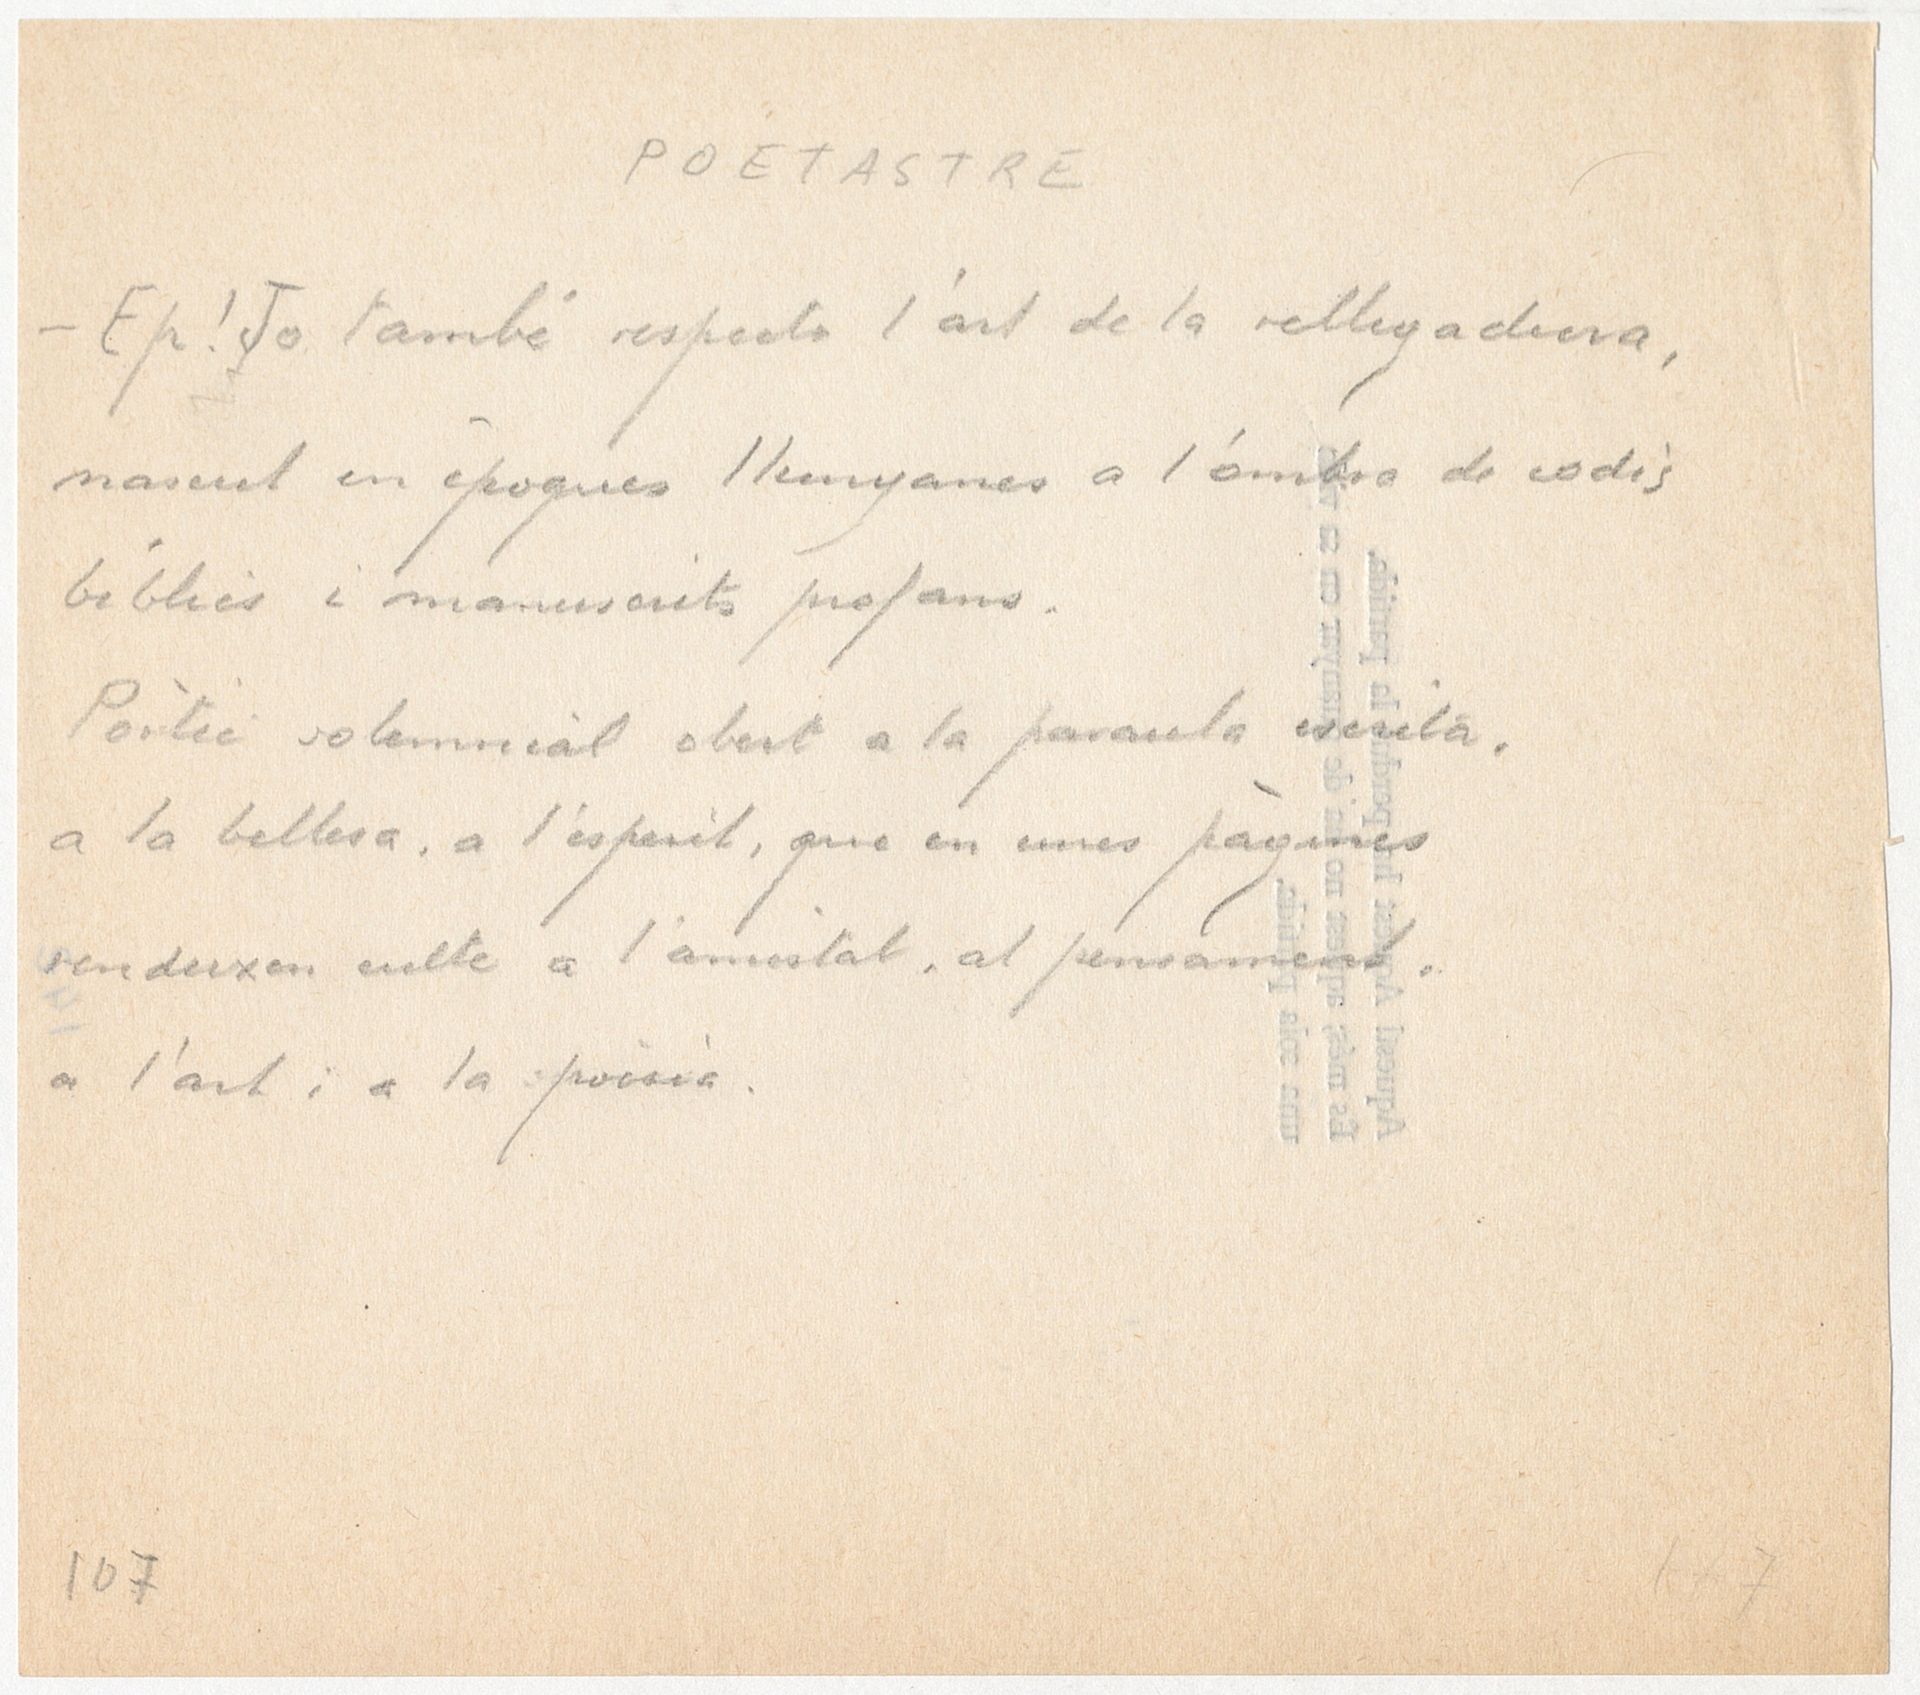 POETASTRE
- Ep! Jo també respecto l'art de la rellligadura,
nascut en èpoques llunyanes a l'ombra de codis
bíblics i manuscrits profans.
Pòrtic solemnial obert a la paraula escrita,
a la bellesa, a l'esperit, que en unes pàgines
rendeixen culte a l'amistat, al pensament,
a l'art i a la poèsia.
107